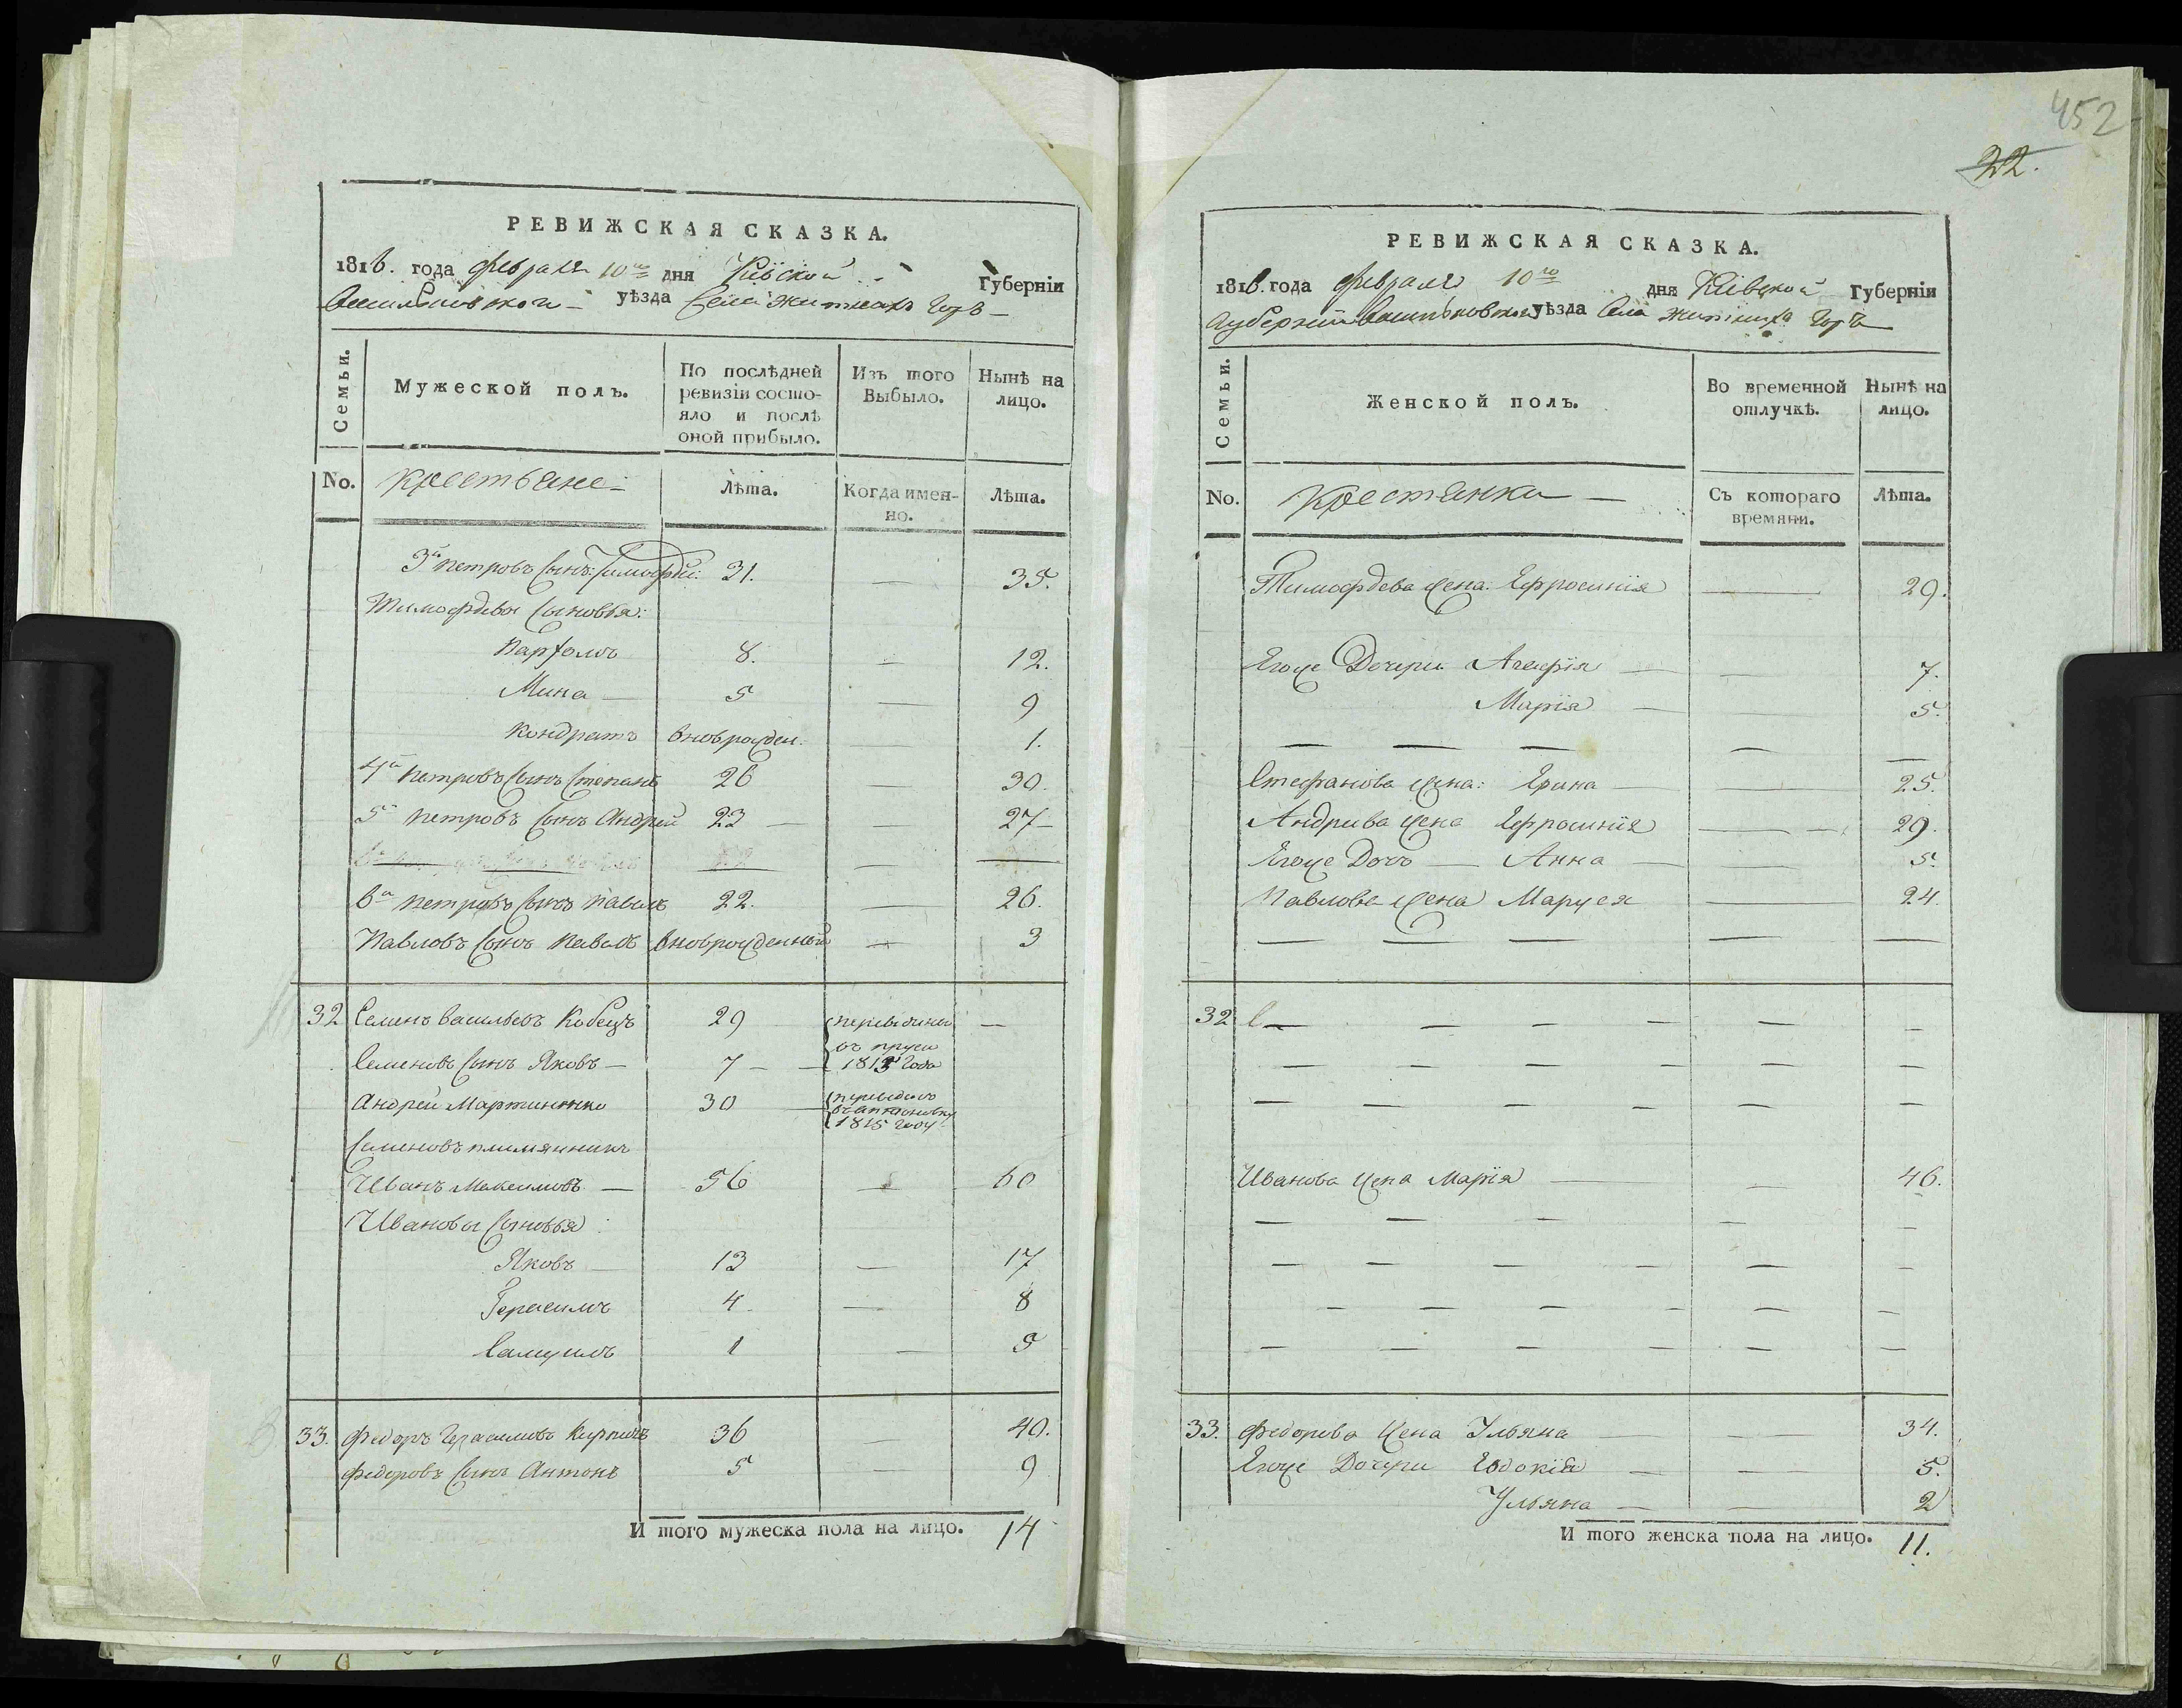 РЕВИЖСКАЯ СКАЗКА.
1816. года февраля 10го дня Кіевской Губерніи
Васильковской уѣзда Села Житныхъ Горъ
Семьи.
Мужеской полъ.
По послѣдней ревизіи состояло и послѣ оной прибыло.
Изъ того Выбыло.
Нынѣ на лицо.
No.
Крестьяне
Лѣта.
Когда именно.
Лѣта.
3й Петровъ Сынъ: Тимофей: 31. — 35.
Тимофѣевы Сыновья:
Парfомъ 8. — 12.
Мина — 5 — 9
Кондратъ вновьрожден. — 1.
4й Петровъ Сынъ Степанъ 26 — 30.
5й Петровъ Сынъ Андрей 23 — — 27
6й Петровъ Сынъ Павелъ 22. — 26.
Павловъ Сынъ Павелъ вновьрожденный — 3
32 Семенъ Васильевъ Кобецъ 29 —
Семеновъ Сынъ Яковъ — 7 — 1813 Года
Андрей Мартиненко 30 —
1815 году
Семеновъ племянникъ
Иванъ Максимовъ — 56 — 60
Ивановы Сыновья:
Яковъ — 13 — 17
Герасимъ 4. — 8
Самуилъ 1 — 5
33. Федоръ Герасимовъ Кирпичъ 36 — 40.
Федоровъ Сынъ Антонъ 5 — 9
И того мужеска пола на лицо. 14
452
22.
РЕВИЖСКАЯ СКАЗКА.
1816. года февраля 10го дня Кіевской Губерніи
Губерніи Васильковской уѣзда Села Житныхъ Горъ
Семьи.
Женской полъ.
Во временной отлучкѣ.
Нынѣ на лицо.
No.
Крестянки —
Съ котораго времяни.
Лѣта.
Тимофѣева жена: Ефросинія — 29.
Егоже Дочери Агафія — — 7.
Марія — — 5.
— — — — —
Стефанова жена: Ерина — — 25.
Андрива жена Ефросинія — 29.
Егоже Дочъ — Анна — 5.
Павлова жена Маруся — 24.
— — — — —
32
— — — — — —
— — — — — —
— — — — — —
Иванова жена Марія — — 46.
— — — — —
— — — — — —
— — — — — —
— — — — — —
33. Федорова жена Ульяна — — 34.
Егоже Дочери Евдокія — — 5.
Ульяна — — 2
И того женска пола на лицо. 11.